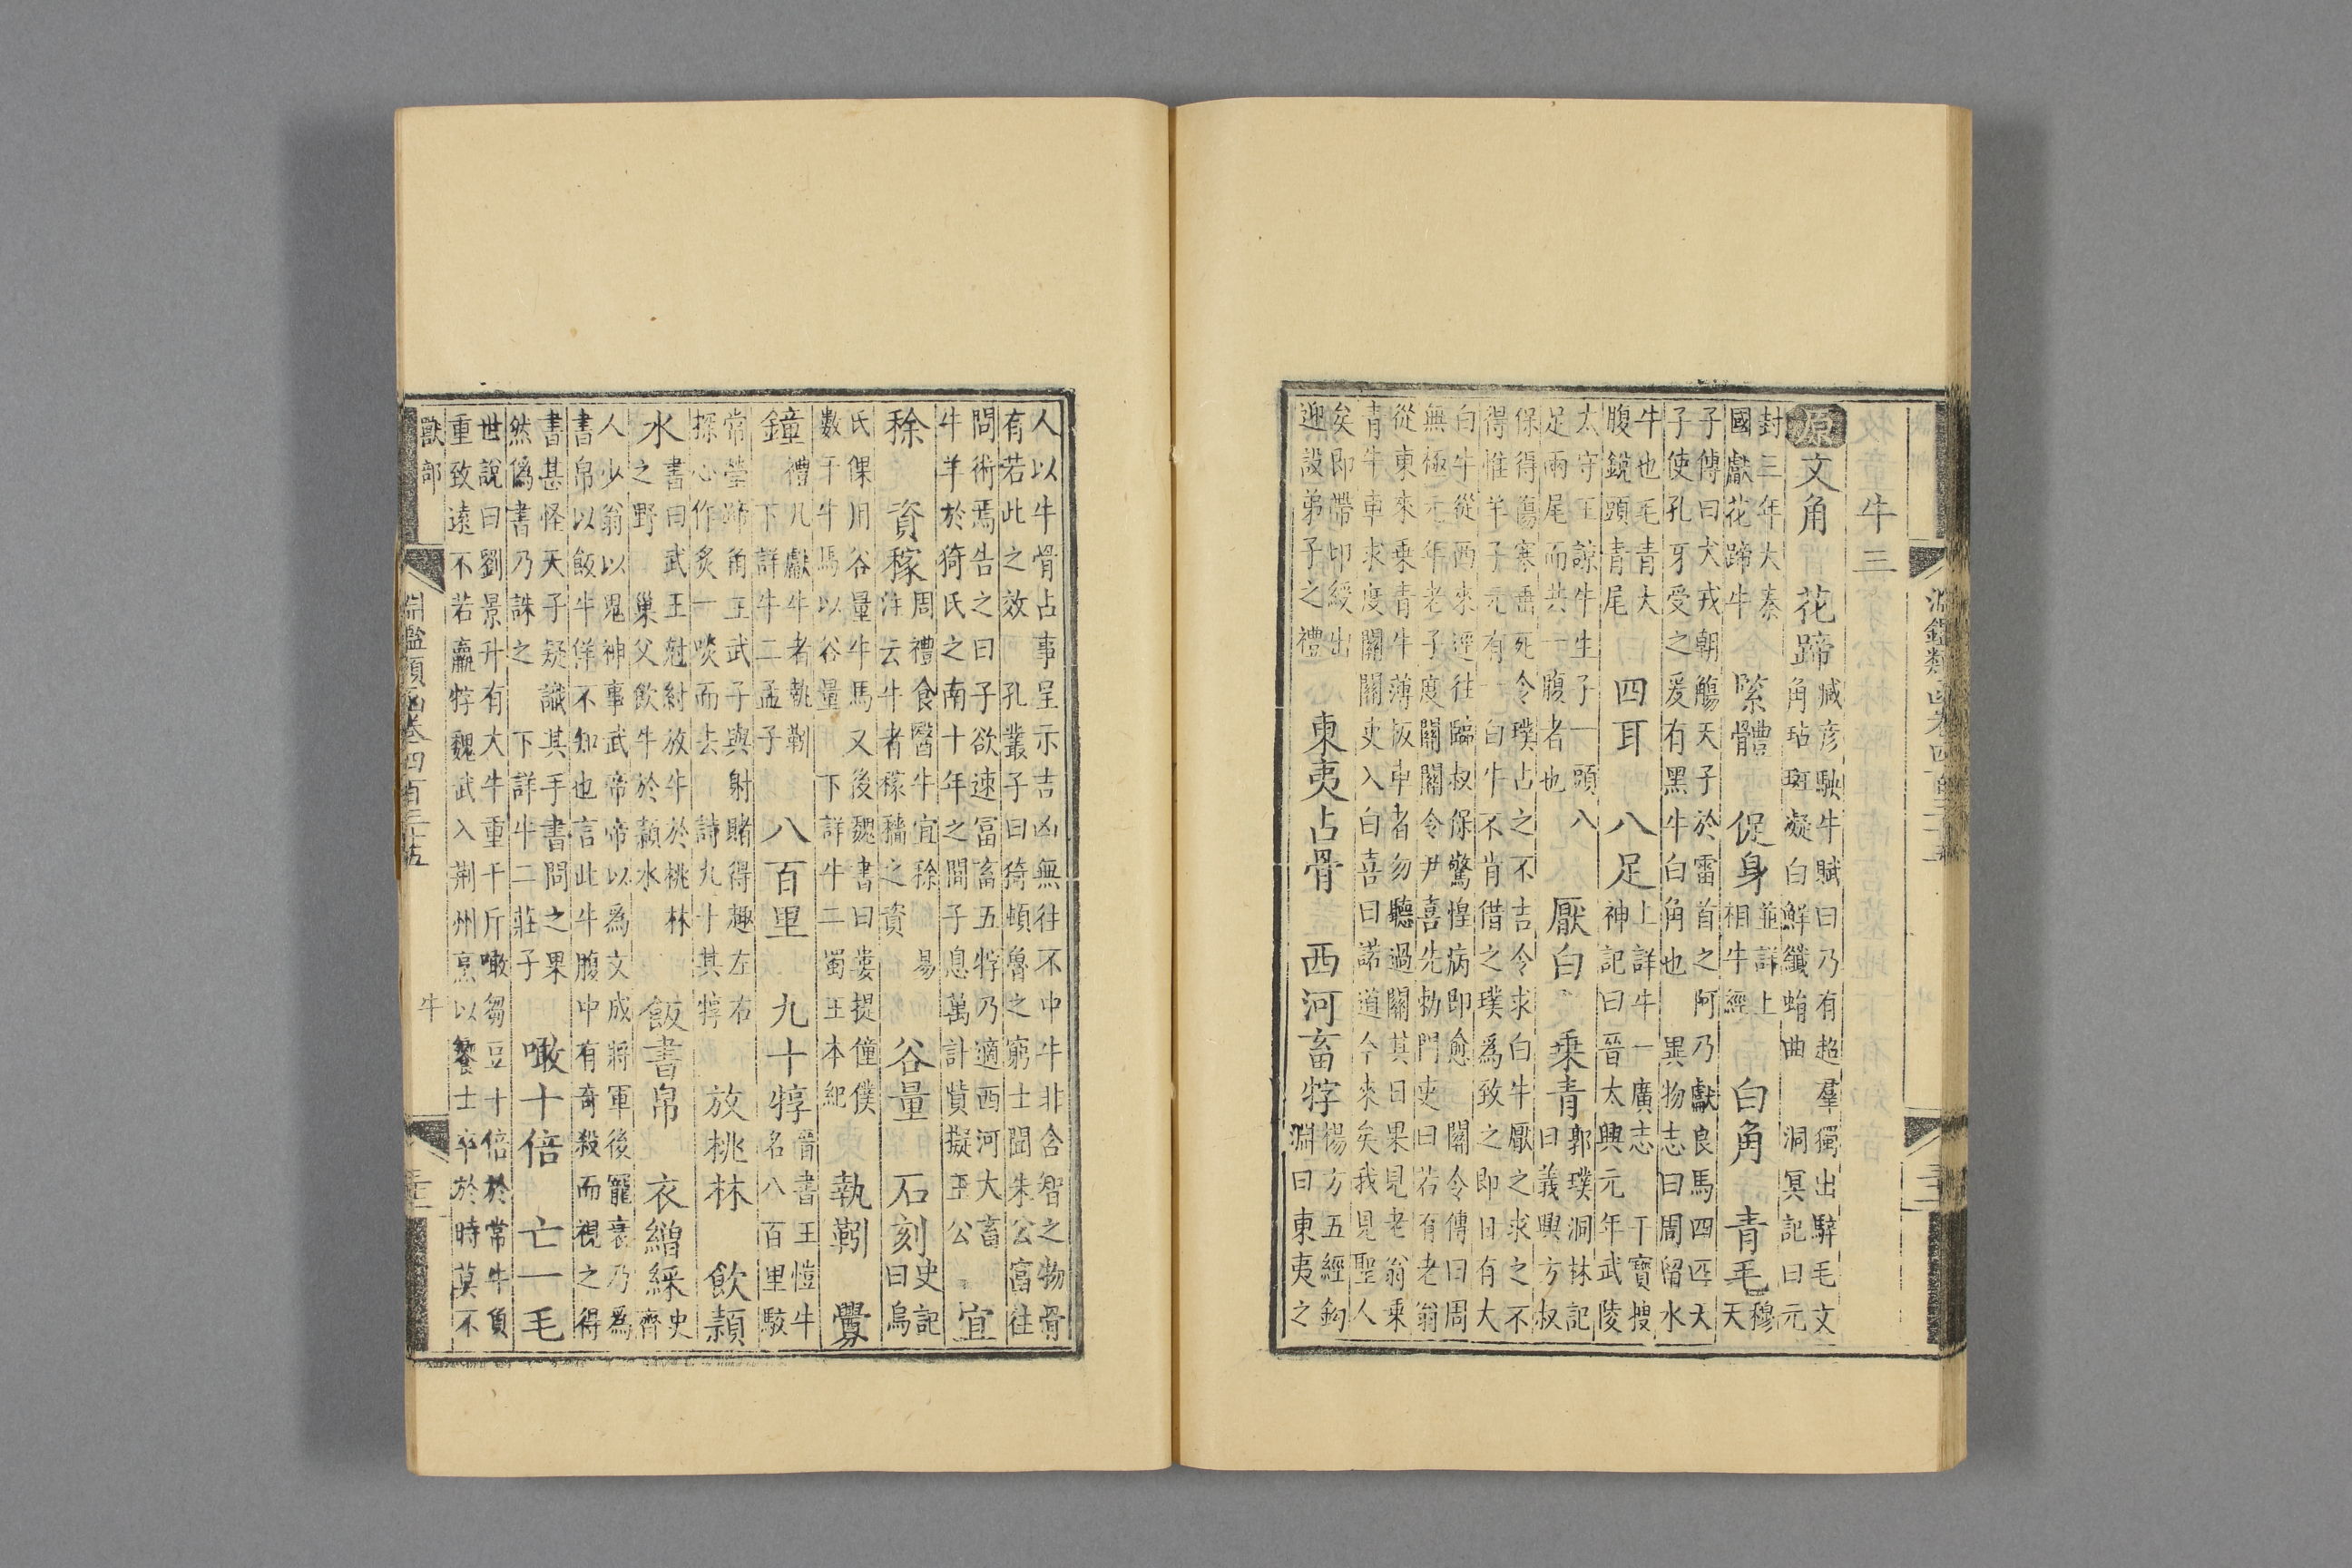 淵鑑類函卷四百三十五
牛三
原文角 花蹄臧彦駚牛賦曰乃有超羣獨出騂毛文
角玷斑凝白鮮纖蛕曲 洞冥記曰元
封三年大秦
國獻花蹄牛 緊體 促身並詳上
相牛經 白角 青毛穆
天
子傳曰犬戎朝觴天子於雷首之阿乃獻良馬四匹天
子使孔牙受之爰有黑牛白角也 異物志曰周留水
牛也毛青大
腹銳頭青尾 四耳 八足上詳牛一廣志 干寶搜
神記曰晉太興元年武陵
太守王諒牛生子一頭八
足兩尾而共一腹者也 厭白 乗青郭璞洞林記
曰義興方叔
保得傷寒垂死令璞占之不吉令求白牛厭之求之不
得惟羊子元有一白牛不肯借之璞爲致之即日有大
白牛從西來逕往臨叔保驚惶病即愈 關令傳曰周
無極元年老子度關關令尹喜先勑門吏曰若有老翁
從東來乗青牛薄板車者勿聽過關其日果見老翁乗
青牛車求度關關吏入白喜曰諾道今來矣我見聖人
矣即帶印綬出
迎設弟子之禮 東夷占骨 西河畜牸楊方五經鈎
淵曰東夷之
人以牛骨占事呈示吉凶無往不中牛非含智之物骨
有若此之效 孔叢子曰猗頓魯之窮士聞朱公富往
問術焉告之曰子欲速富畜五牸乃適西河大畜
牛羊於猗氏之南十年之間子息萬計貲擬王公 宜
稌 資稼周禮食醫牛宜稌 易
注云牛者稼穡之資 谷量 石刻史記
曰烏
氏倮用谷量牛馬又後魏書曰婁提僮僕
數千牛馬以谷量 下詳牛二蜀王本紀 執靷 釁
鐘禮凡獻牛者執靷
下詳牛二孟子 八百里 九十犉晉書王愷牛
名八百里駮
常瑩蹄角王武子與射賭得趣左右
探心作炙一啖而去 詩九十其犉 放桃林 飲潁
水書曰武王尅紂放牛於桃林
之野 巢父飲牛於潁水 飯書帛 衣繒綵史
齊
人少翁以鬼神事武帝帝以爲文成將軍後寵衰乃爲
書帛以飯牛佯不知也言此牛腹中有奇殺而視之得
書甚怪天子疑識其手書問之果
然僞書乃誅之 下詳牛二莊子 噉十倍 亡一毛
世說曰劉景升有大牛重千斤噉芻豆十倍於常牛負
重致遠不若羸牸魏武入荆州烹以饗士卒於時莫不
獸部 淵鑑類函卷四百三十五 牛